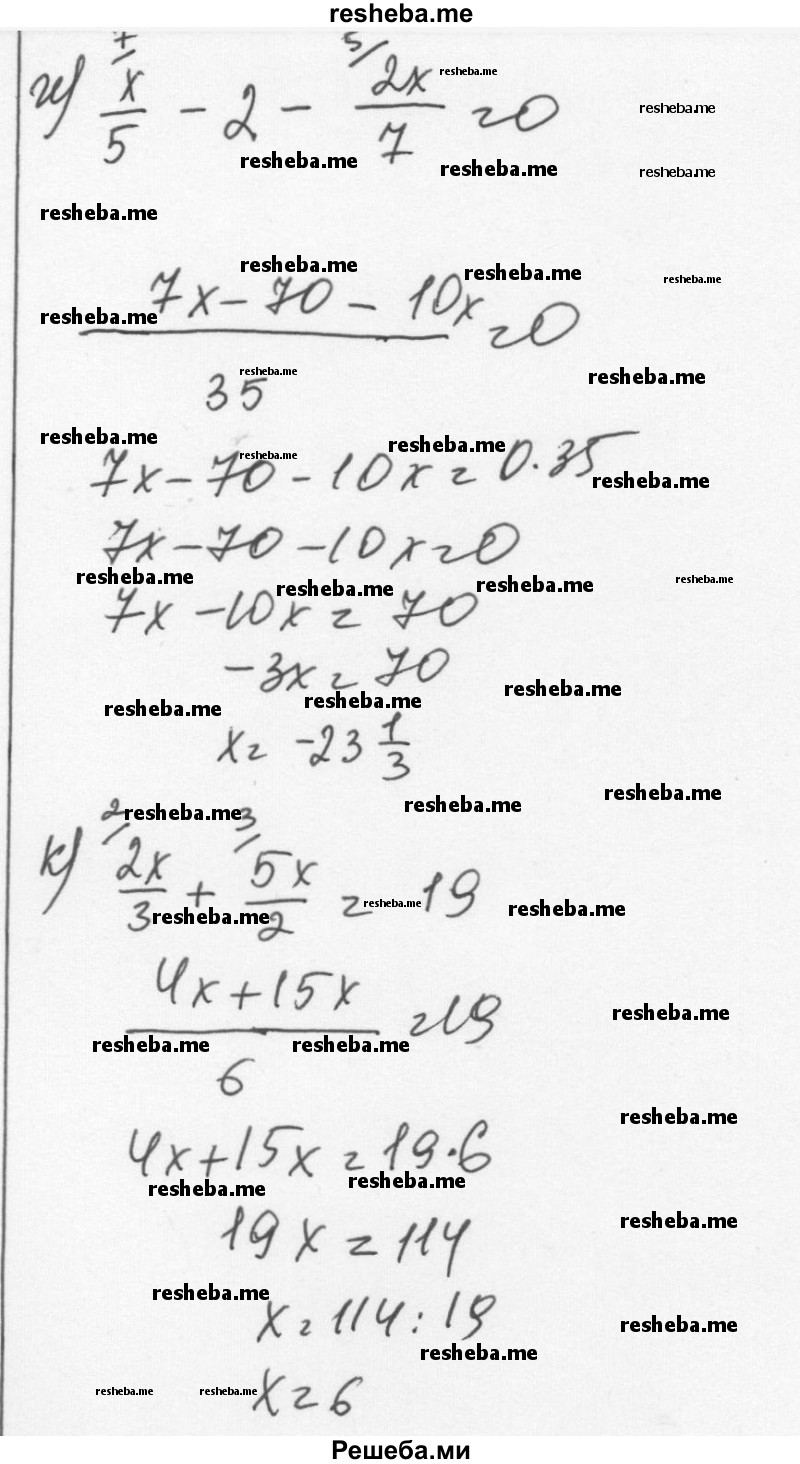 resheba.me
ж) 7/ x/5 - 2 - 5/ 2x/7 = 0
(7x - 70 - 10x)/35 = 0
7x - 70 - 10x = 0·35
7x - 70 - 10x = 0
7x - 10x = 70
-3x = 70
x = -23 1/3
к) 2/ 2x/3 + 3/ 5x/2 = 19
(4x + 15x)/6 = 19
4x + 15x = 19·6
19x = 114
x = 114 : 19
x = 6
Решеба.ми